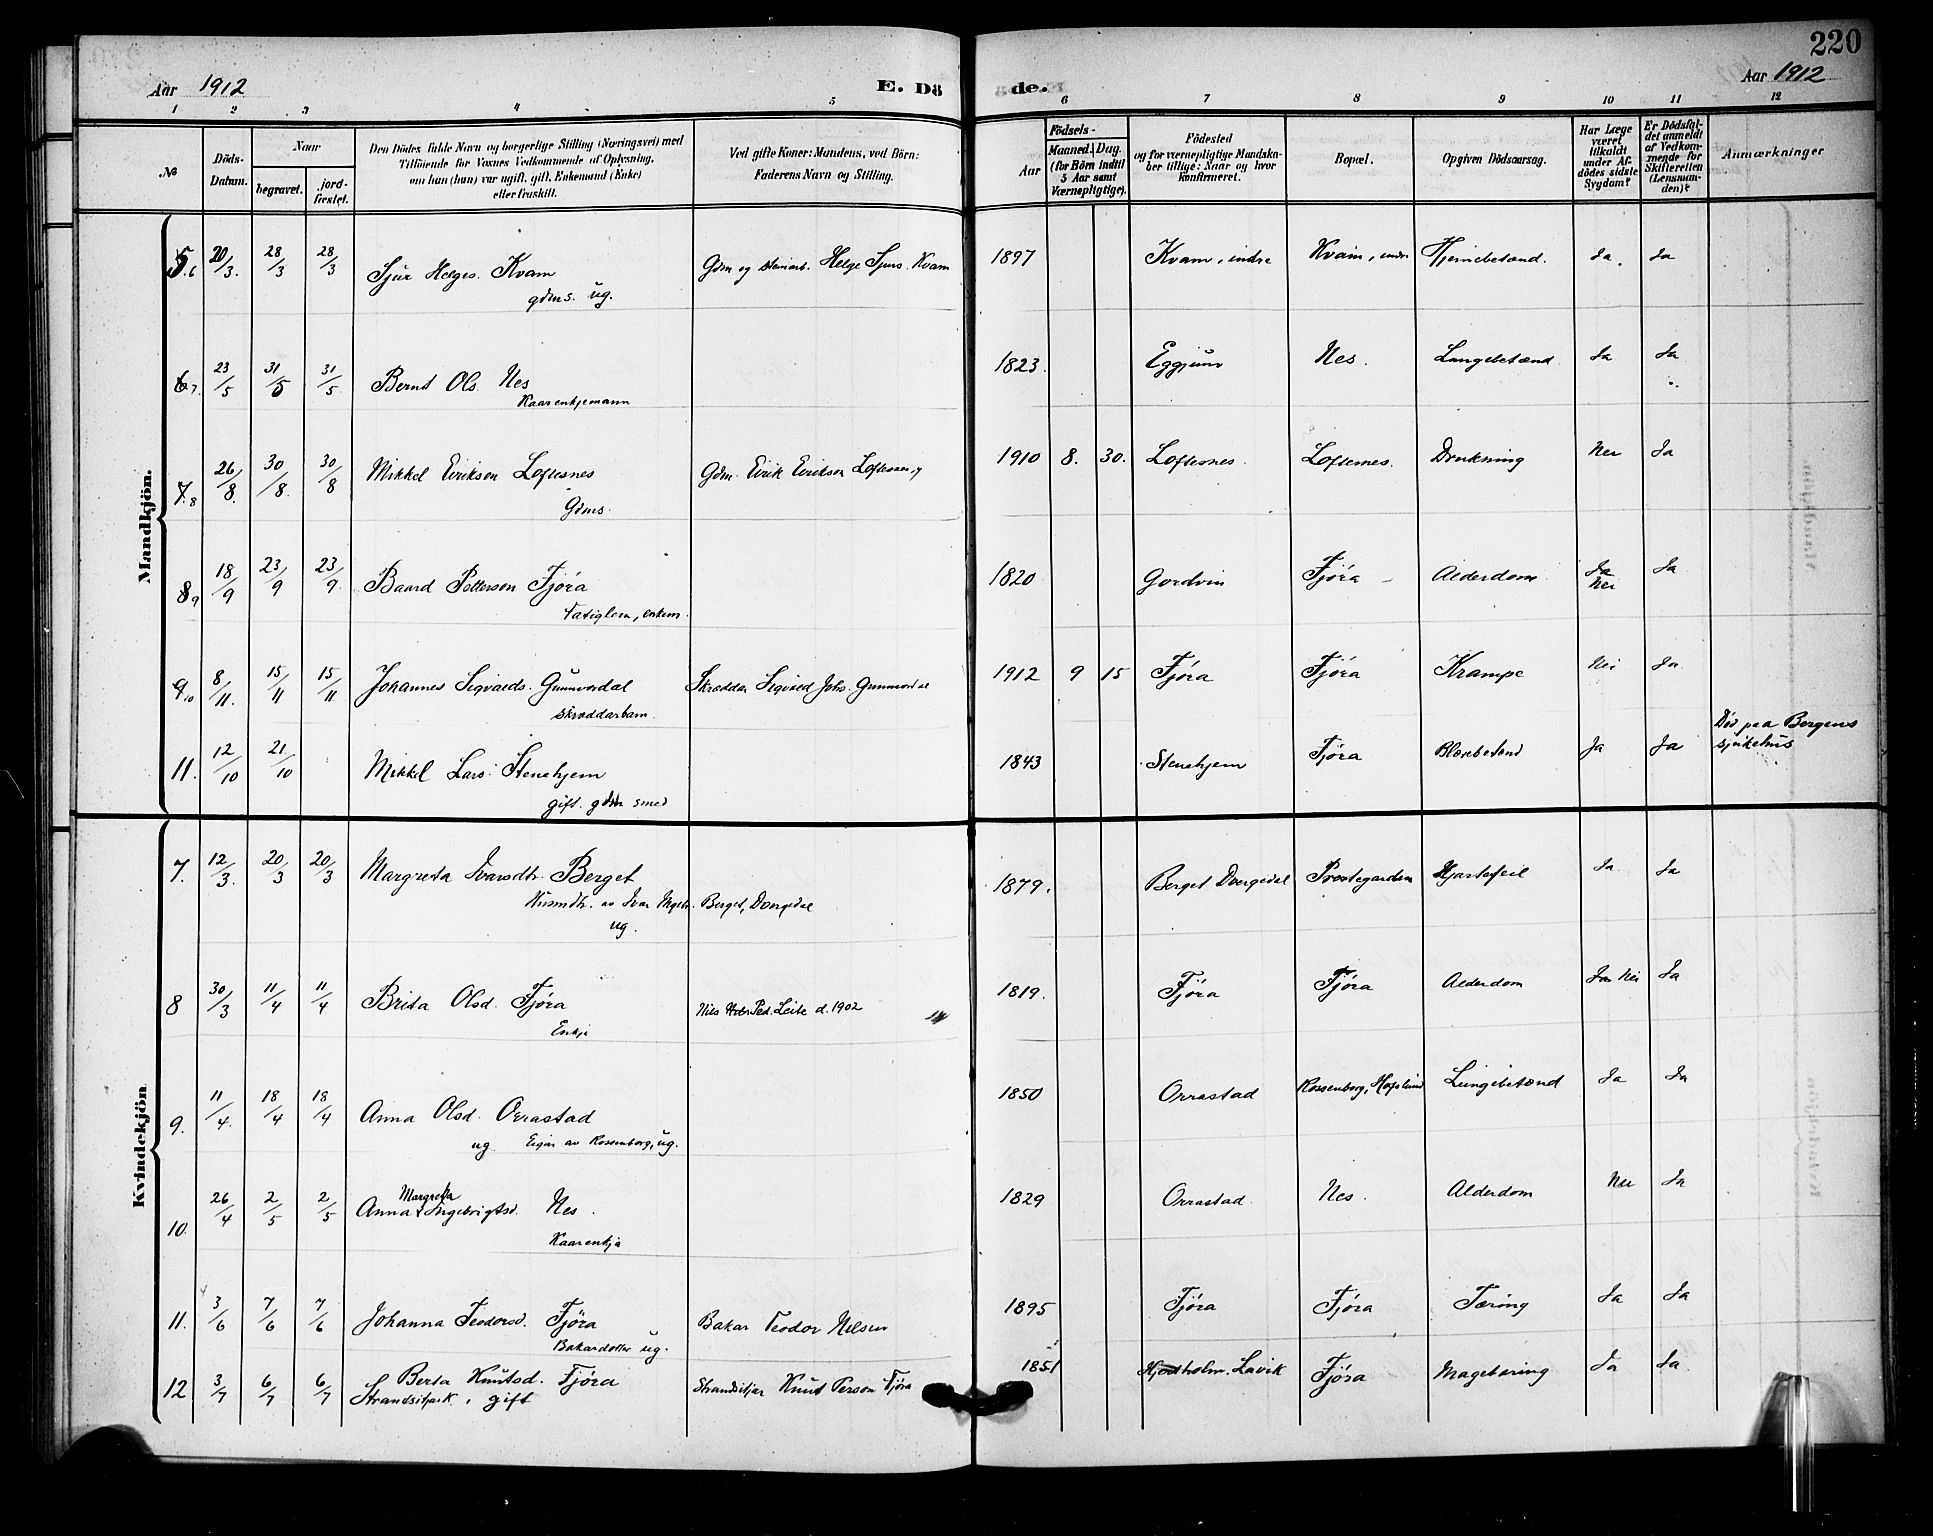 220
Aar 1912
E. Dö
de.
Aar 1912
1 2 3 4 5 6 7 8 9 10 11 12
№
Döds-
Datum.
Naar
begravet.
jord-
fæstet.
Den Dödes fulde Navn og borgerlige Stilling (Næringsvei) med
Tilföiende for Voxnes Vedkommende af Oplysning,
om han (hun) var ugift, gift, Enkemand (Enke)
eller fraskilt.
Ved gifte Koner: Mandens, ved Börn:
Faderens Navn og Stilling.
Aar
Födsels-
Maaned. Dag.
(for Börn indtil
5 Aar samt
Værnepligtige).
Födested
og for værnepligtige Mandska-
ber tillige: Naar og hvor
konfirmeret.
Bopæl.
Opgiven Dödsaarsag.
Har Læge
været
tilkaldt
under Af-
dödes sidste
Sygdom?
Er Dödsfal-
det anmeldt
af Vedkom-
mende for
Skifteretten
(Lensman-
den)?
Anmærkninger
Mandkjön.
5.6 20/3. 28/3 28/3 Sjur Helges. Kvam Gdm og stenarb. Helge Sjurs. Kvam 1897 Kvam, indre Kvam, indre Hjernebetænd. Ja. Ja
gdms. ug.
6 7. 23/5 31/5 31/5 Bernt Ols. Nes 1823. Eggjum Nes. Lungebetænd. Ja Ja
Kaarenkjemann
7.8 26/8. 30/8. 30/8 Mikkel Eirikson Loftesnes Gdm. Eirik Eirikson Loftesnes 1910 8. 30. Loftesnes. Loftesnes. Drukning Nei Ja
Gdms.
8 9 18/9 23/9 23/9. Baard Petterson Fjøra 1820 Gordvin Fjøra Alderdom. Ja Nei Ja
Fatiglem, enkem.
9 10 8/11. 15/11 15/11 Johannes Sigvards. Gunvordal Skrædder Sigvard Johs. Gunvordal 1912 9 15 Fjøra Fjøra Krampe Nei Ja
skræddarbarn.
11. 12/10 21/10 Mikkel Lars. Stenehjem 1843 Stenehjem Fjøra Blærebetænd Ja Ja Död paa Bergens
sjukehus
gift. gdbr smed
Kvindekjön
7. 12/3. 20/3 20/3 Margreta Ivarsdtr. Berget 1879. Berget Dvergedal Prestegarden Hjartefeil Ja Ja
Husmdtr. av Ivar Mgebr. Berget, Dvergedal
ug.
8 30/3 11/4 11/4 Brita Olsd. Fjøra Nils Ped. Leite d. 1902 1819. Fjøra Fjøra Alderdom Ja Nei Ja
Enkja
9. 11/4. 18/4 18/4 Anna Olsd. Orrastad 1850 Orrastad Rossenborg, Hofslund Lungebetænd Ja Ja
ug. Eigar av Rossenborg, ug.
Margreta
10. 26/4 2/5 2/5 Anna Ingebrigtsd. Nes. 1829 Orrastad. Nes. Alderdom Nei Ja
Kaarenkja
11. 3/6 7/6 7/6 Johanna Teodorsd. Fjøra Bakar Teodor Nilsen 1895 Fjøra Fjøra Tæring Ja Ja
Bakardotter ug.
12 3/7 6/7 6/7 Berta Knutsd. Fjøra Strandsitjar Knut Person Fjøra 1851 Hjortholm. Lavik Fjøra Magetæring Ja Ja.
Strandsitjark, gift